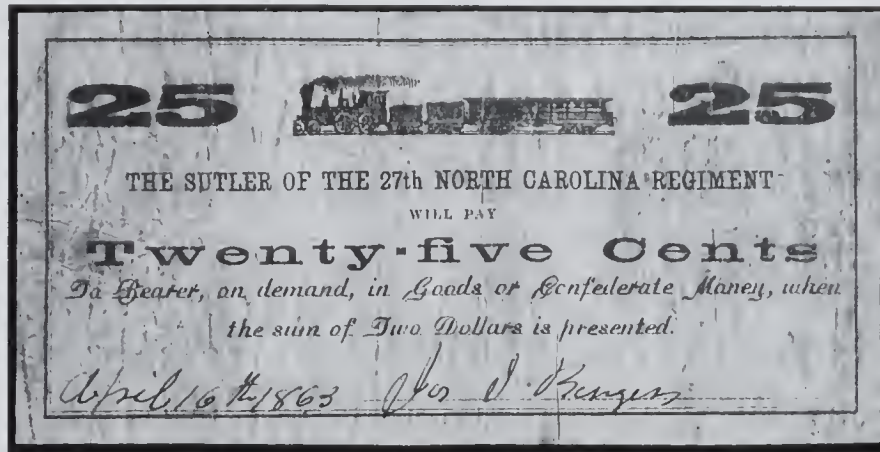 25 25
THE SUTLER OF THE 27th NORTH CAROLINA REGIMENT
WILL PAY
Twenty-five Cents
To Bearer, on demand, in Goods or Confederate Money, when
the sum of Two Dollars is presented.
April 16th 1863 Jos J.